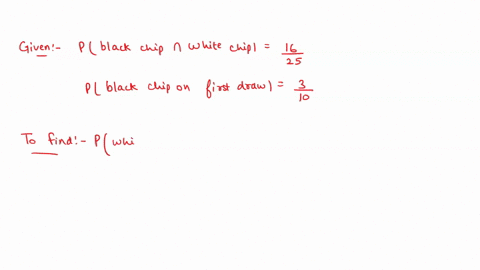 Given:- P( black chip ∩ white chip) = 16/25
P( black chip on first draw) = 3/10
To find:- P( whi